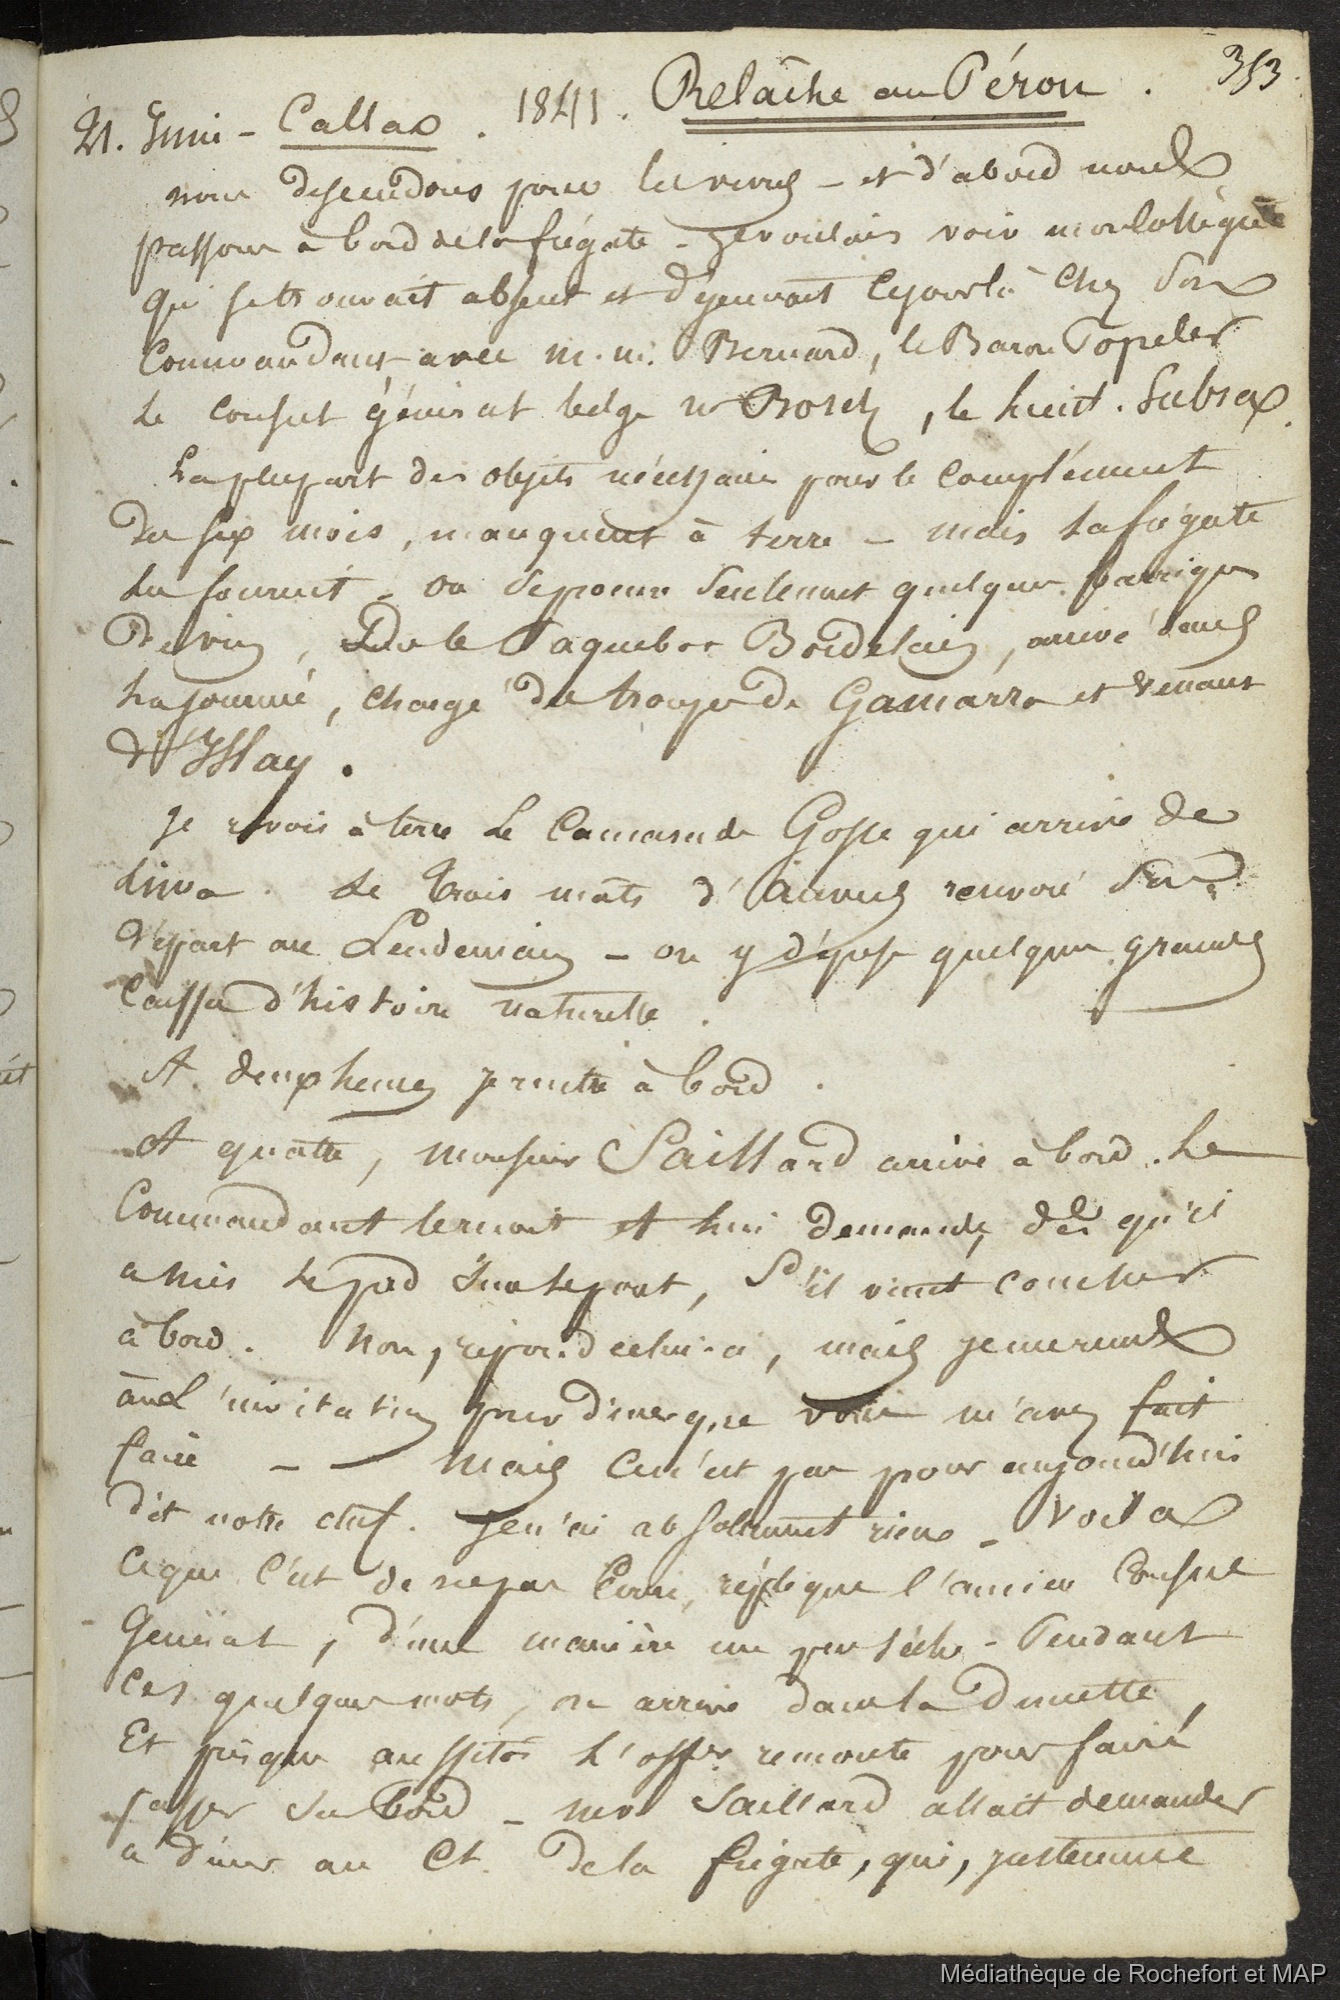 353
21. Juin - Callao. 1841. Relâche au Pérou.
nous descendons pour les vivres - et d'abord nous
passons à bord de la frégate - je voulais voir mon collègue
qui se trouvait absent et déjeunait ce jour là chez son
Commandant avec m.m. Bernard, le Baron Popeler
le consul général belge mr Bosch, le lieut. Subra
La plupart des objets nécessaires pour le complément
de six mois, manquent à terre - mais la frégate
les fournit - on dépose seulement quelques barriques
de vin, de le Paquebot Bordelais, arrivé dans
la journée, chargé de troupes de Gamarra et venant
d'Islay.
Je revois à terre le Camarade Gosse qui arrive de
Lima. Le trois mâts d'Anvers renvoie son
départ au Lendemain - on y dépose quelques grandes
caisses d'histoire naturelle.
A deux heures je rentre à bord.
A quatre, monsieur Saillard arrive à bord. Le
Commandant le reçoit et lui demande, dès qu'il
a mis le pied sur le pont, s'il vient coucher
à bord. Non, répond celui-ci, mais je me rends
à l'invitation pour diner que vous m'avez fait
faire - - Mais ce n'est pas pour aujourd'hui
dit notre chef. Je n'ai absolument rien - Voilà
ce que c'est de ne pas écrire, réplique l'ancien Consul
Général, d'une manière un peu sèche - Pendant
ces quelques mots, on arrive dans la dunette,
Et presque aussitôt l'offer. remonte pour faire
passer du bord - mr Saillard allait demander
à diner au Ct. de la frégate, qui, justement
Médiathèque de Rochefort et MAP